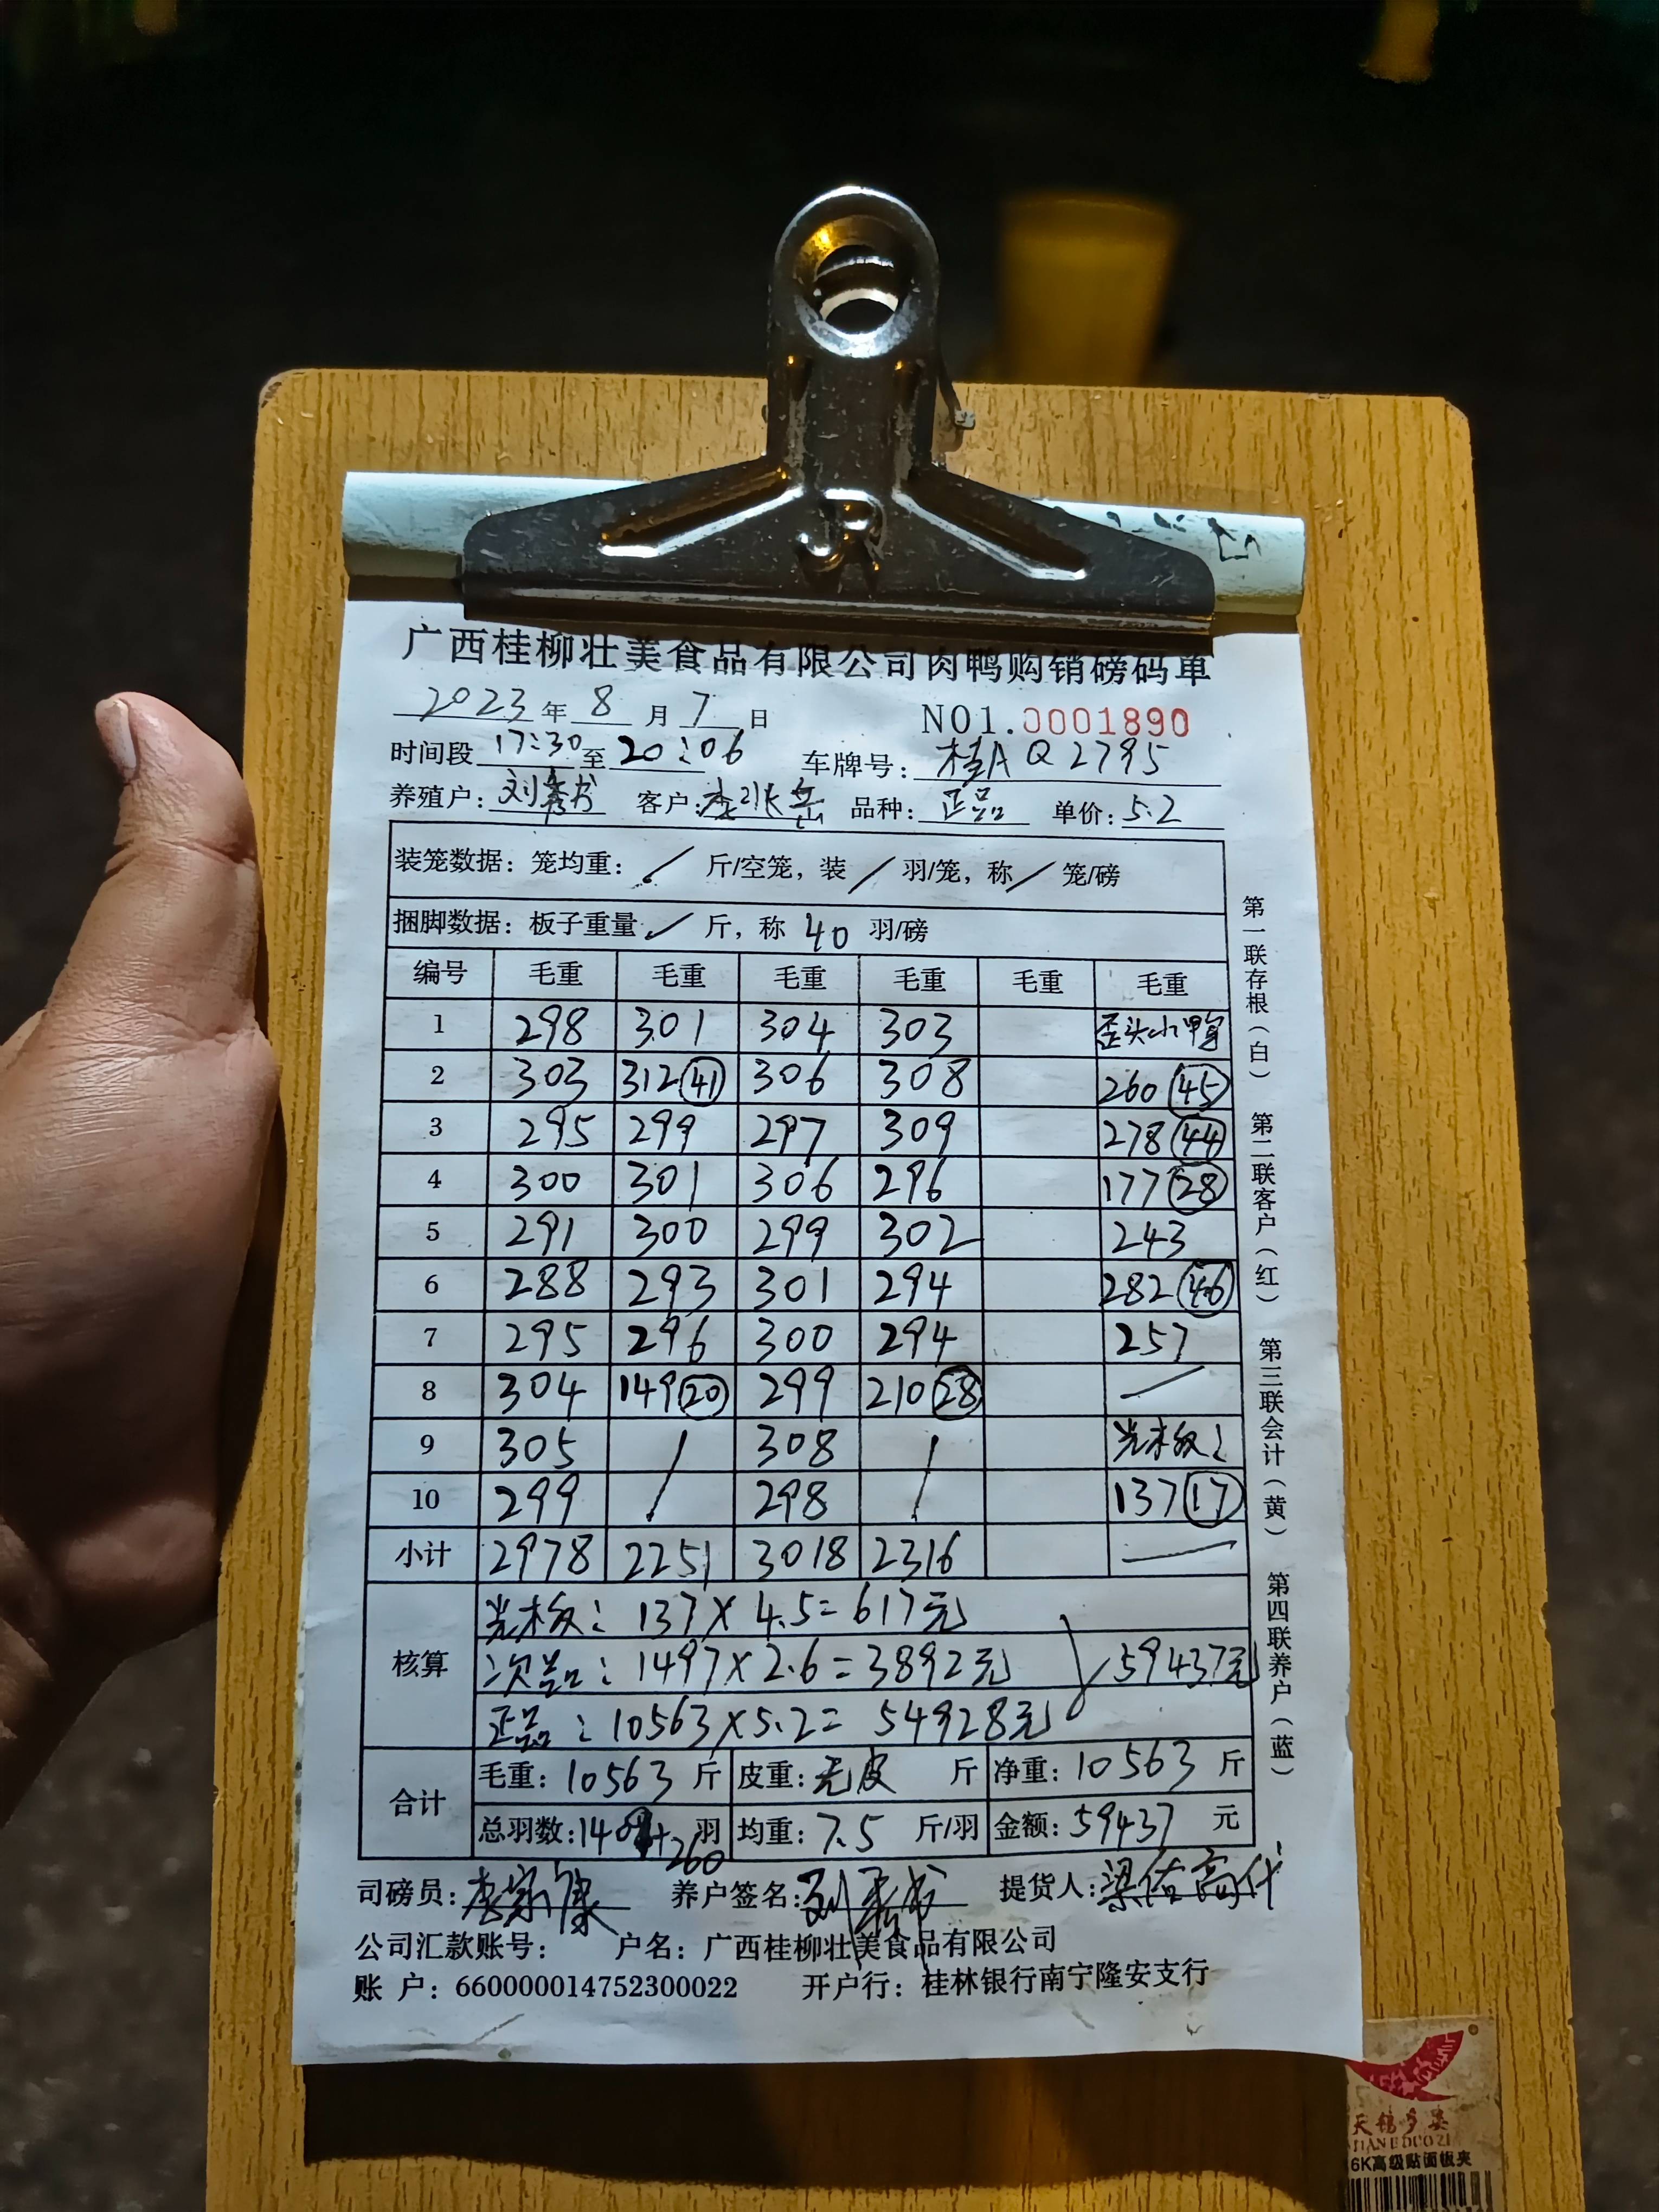 JR
广西桂柳壮美食品有限公司肉鸭购销磅码单
2023年8月7日 NO1.0001890
时间段17:30至20:06 车牌号:桂A Q2795
养殖户:刘 客户: 品种:正品 单价:5.2
装笼数据:笼均重:/斤/空笼,装/羽/笼,称/笼/磅
捆脚数据:板子重量/斤,称40羽/磅
编号 毛重 毛重 毛重 毛重 毛重 毛重
1 298 301 304 303 歪头小鸭
2 303 312(41) 306 308 260(45)
3 295 299 297 309 278(44)
4 300 301 306 296 177(28)
5 291 300 299 302 243
6 288 293 301 294 282(46)
7 295 296 300 294 257
8 304 149(20) 299 210(28) —
9 305 / 308 / 光板:
10 299 / 298 / 137(17)
小计 2978 2251 3018 2316 —
核算
光板:137×4.5=617元
次品:1497×2.6=3892元 59437元
正品:10563×5.2=54928元
合计
毛重:10563斤 皮重:无皮 斤 净重:10563斤
总羽数: +260 羽 均重:7.5斤/羽 金额:59437元
司磅员: 养户签名:刘 提货人:
公司汇款账号: 户名:广西桂柳壮美食品有限公司
账 户:660000014752300022 开户行:桂林银行南宁隆安支行
第一联存根(白) 第二联客户(红) 第三联会计(黄) 第四联养户(蓝)
天错多姿
TIAN E DUO ZI
6K高级贴面板夹